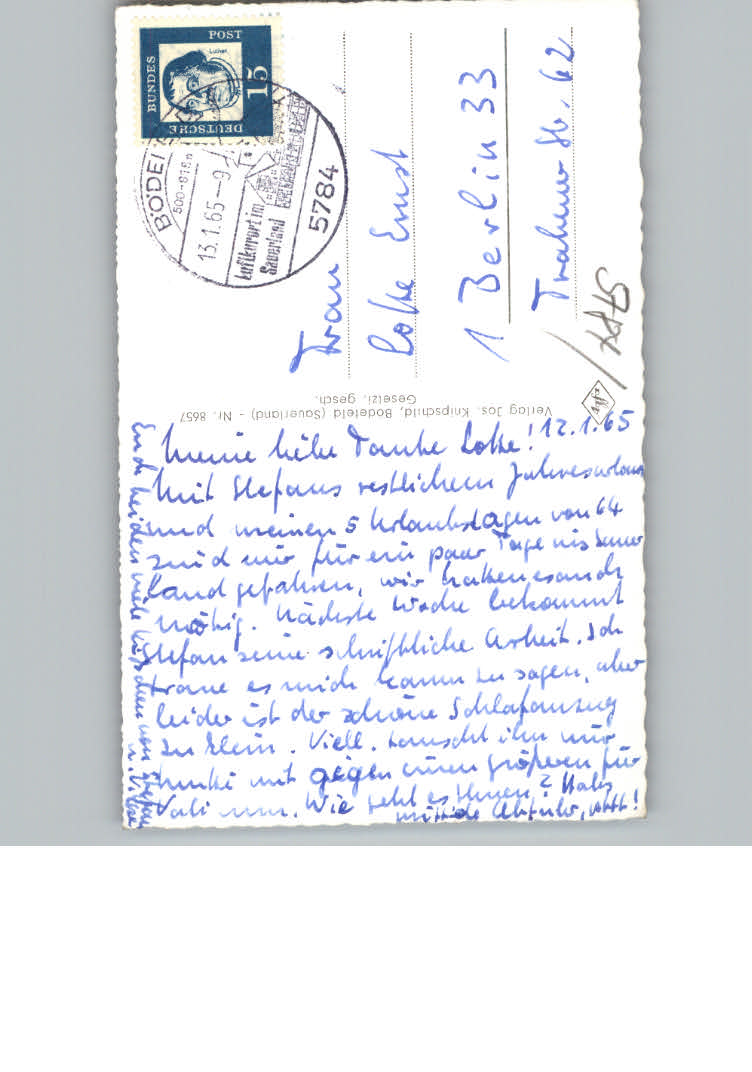 DEUTSCHE
BUNDES
POST
15
Luther
BÖDEFELD
500-818m
13.1.65-9
Luftkurort im
Sauerland
5784
Frau
Lotte Ernst
1 Berlin 33
Str. 62
Verlag Jos. Knipschild, Bödefeld (Sauerland) - Nr. 8657
Gesetzl. gesch.
12.1.65
Meine liebe Tante Lotte!
Mit Stefans restlichem Jahresurlaub
und meinen 5 Urlaubstagen von 64
sind wir für ein paar Tage ins Sauer
land gefahren, wir hatten es auch
nötig. Nächste Woche bekommt
Stefan seine schriftliche Arbeit. Ich
traue es mich kaum zu sagen, aber
leider ist der schöne Schlafanzug
zu klein. Viell. tauscht ihn mir
mit gegen einen größeren für
Vati um. Wie geht es Ihnen?
mit der
Euch beiden viele Küsschen von Stefan
u.